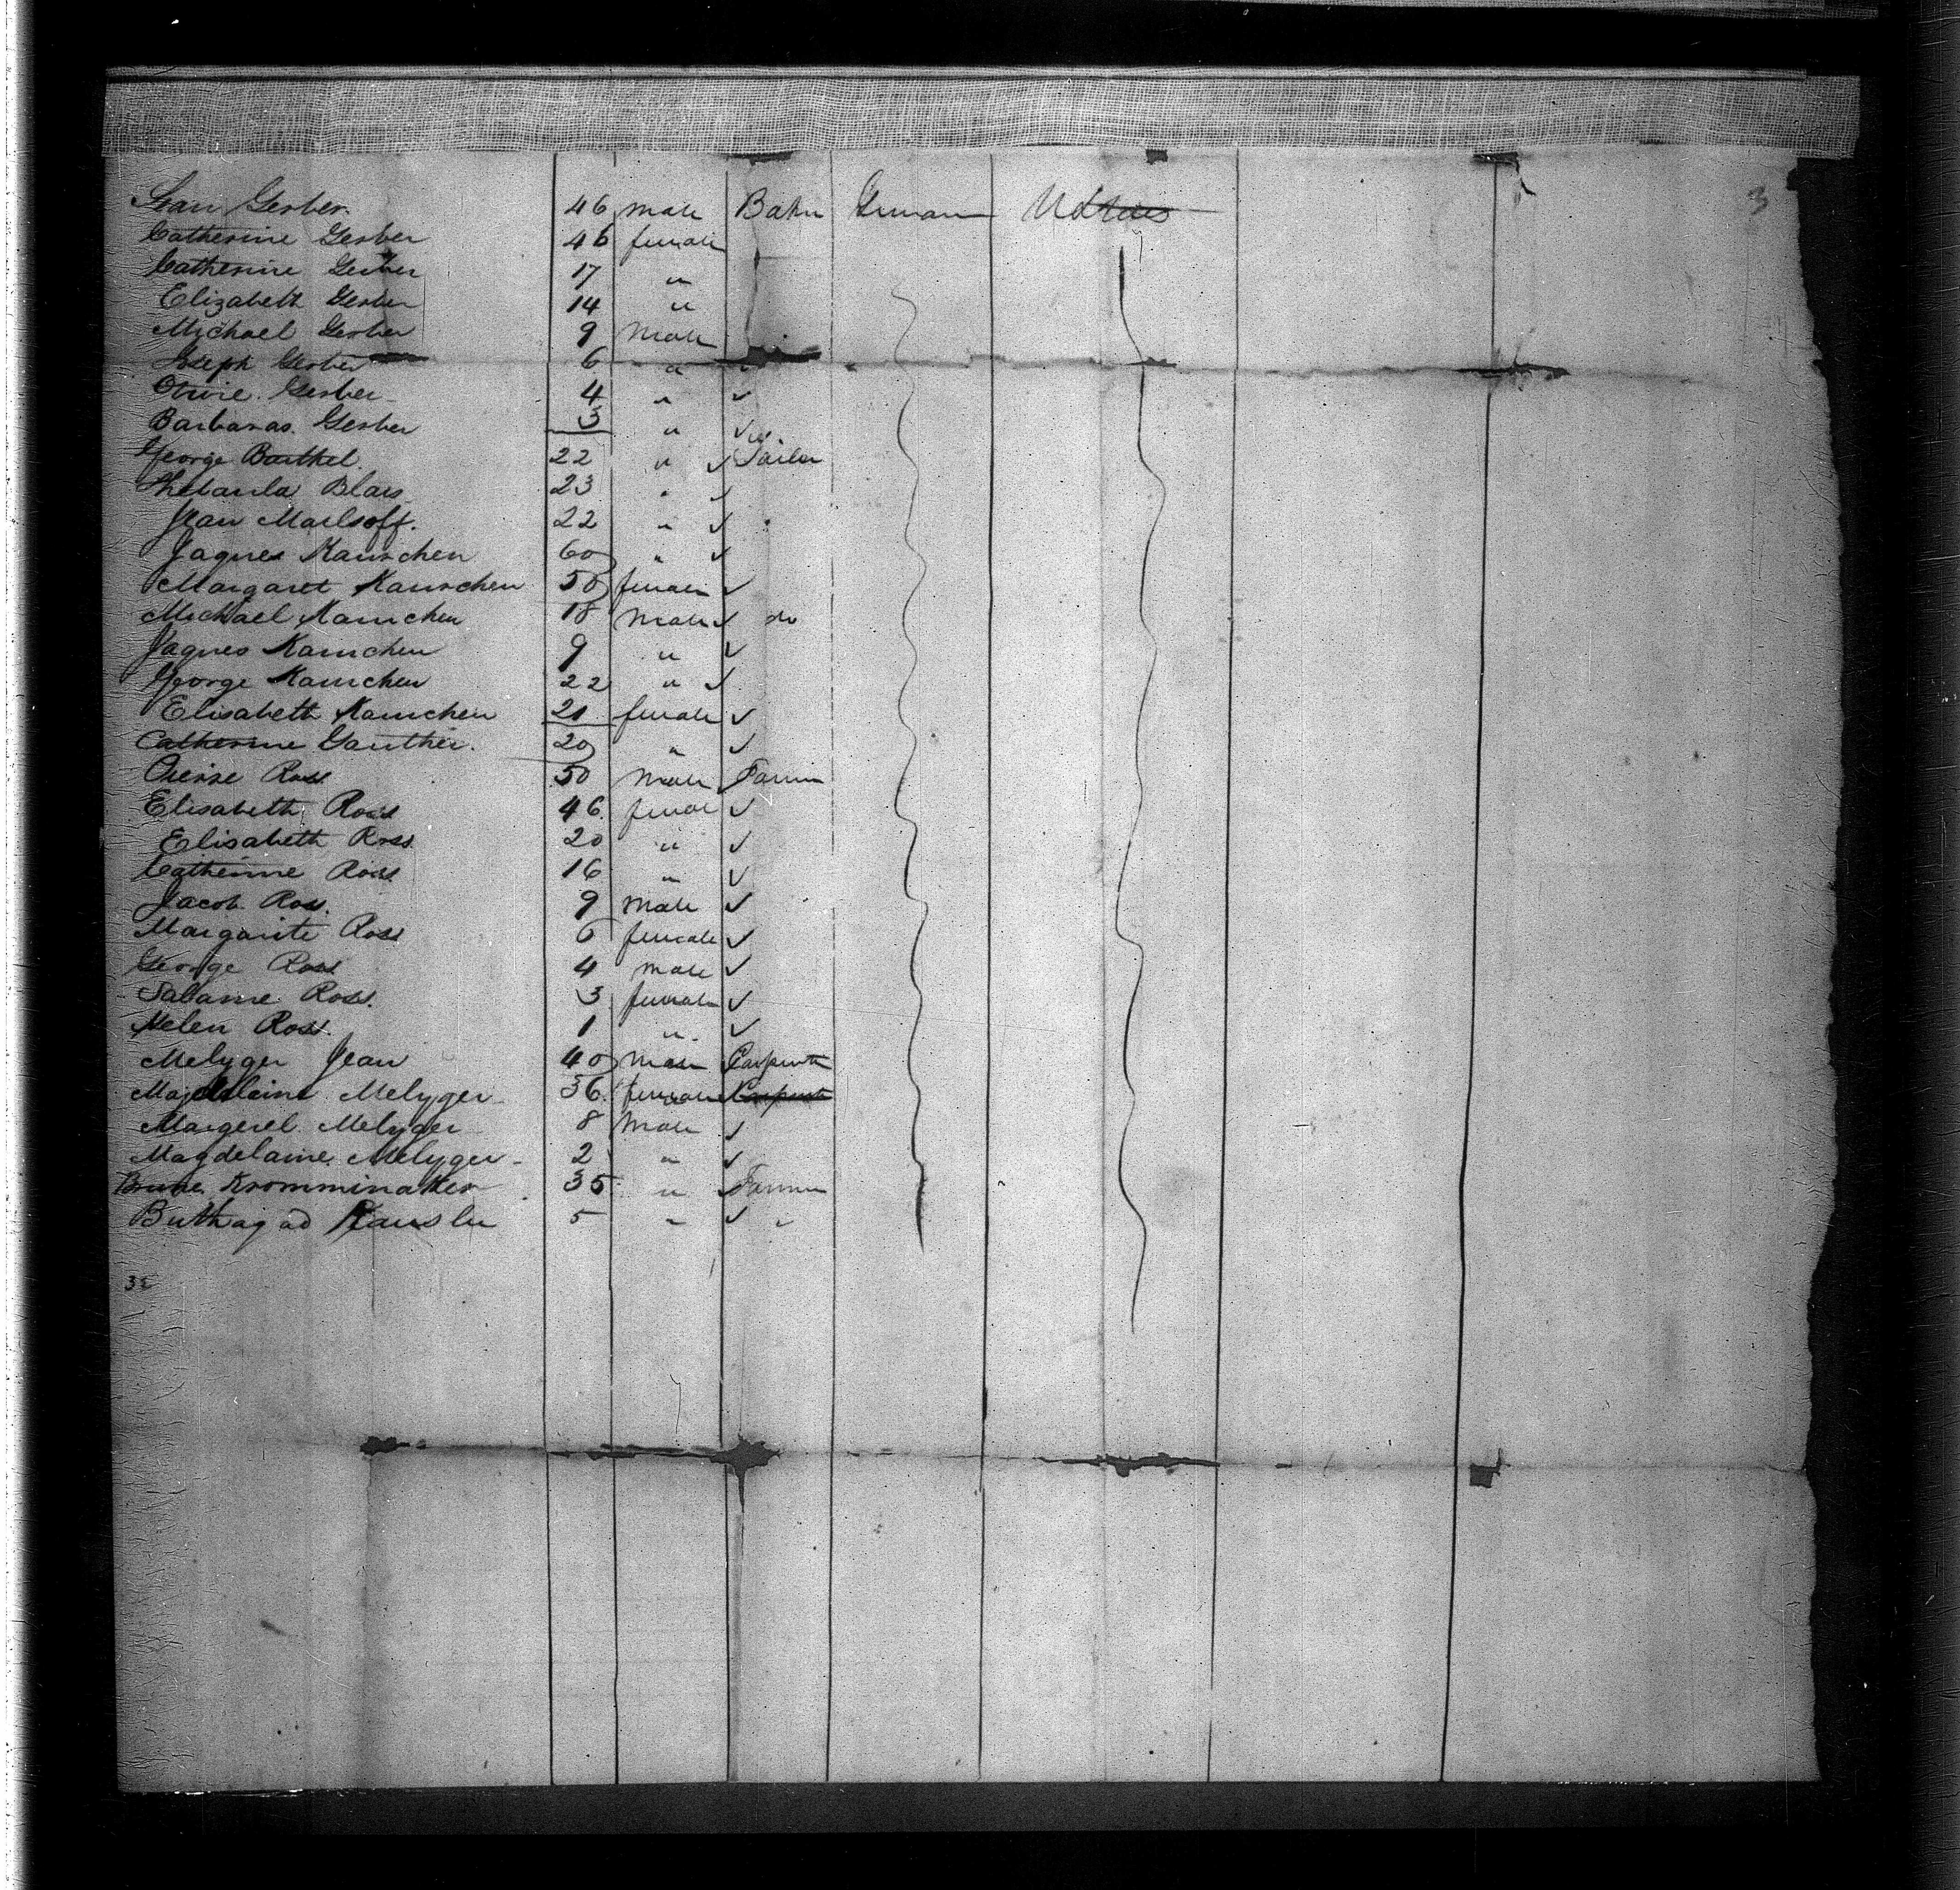 3
Jean Gerber. 46 male Baker German U States
Catherine Gerber 46 female
Catherine Gerber 17 "
Elizabeth Gerber 14 "
Michael Gerber 9 Male
Joseph Gerber 6 " "
Gerber 4 " ✓
Barbaras. Gerber 3 " ✓
George Barthel. 22 " ✓ Tailor
Blais 23 " ✓
Jean Mailsoff. 22 " ✓
Jaques Kamchen 60 " ✓
Margaret Kamchen 50 female ✓
Michael Kamchen 18 Male ✓ do
Jaques Kamchen 9 " ✓
George Kamchen 22 " ✓
Elisabeth Kamchen 21 female ✓
Catherine Gauthier. 20 " ✓
Pierre Ross 50 Male Farmer
Elisabeth Ross 46 female ✓
Elisabeth Ross 20 " ✓
Catherine Ross 16 " ✓
Jacob Ross. 9 Male ✓
Margarite Ross 6 female ✓
George Ross 4 male ✓
Salame Ross. 3 female ✓
Helen Ross. 1 " ✓
Melyger Jean 40 Male Carpenter
Magdelaine Melyger 36. female Carpenter
Margerel Melyger 8 Male ✓
Magdelaine Melyger 2 " ✓
Kromminaker 35 " Farmer
5 " ✓ "